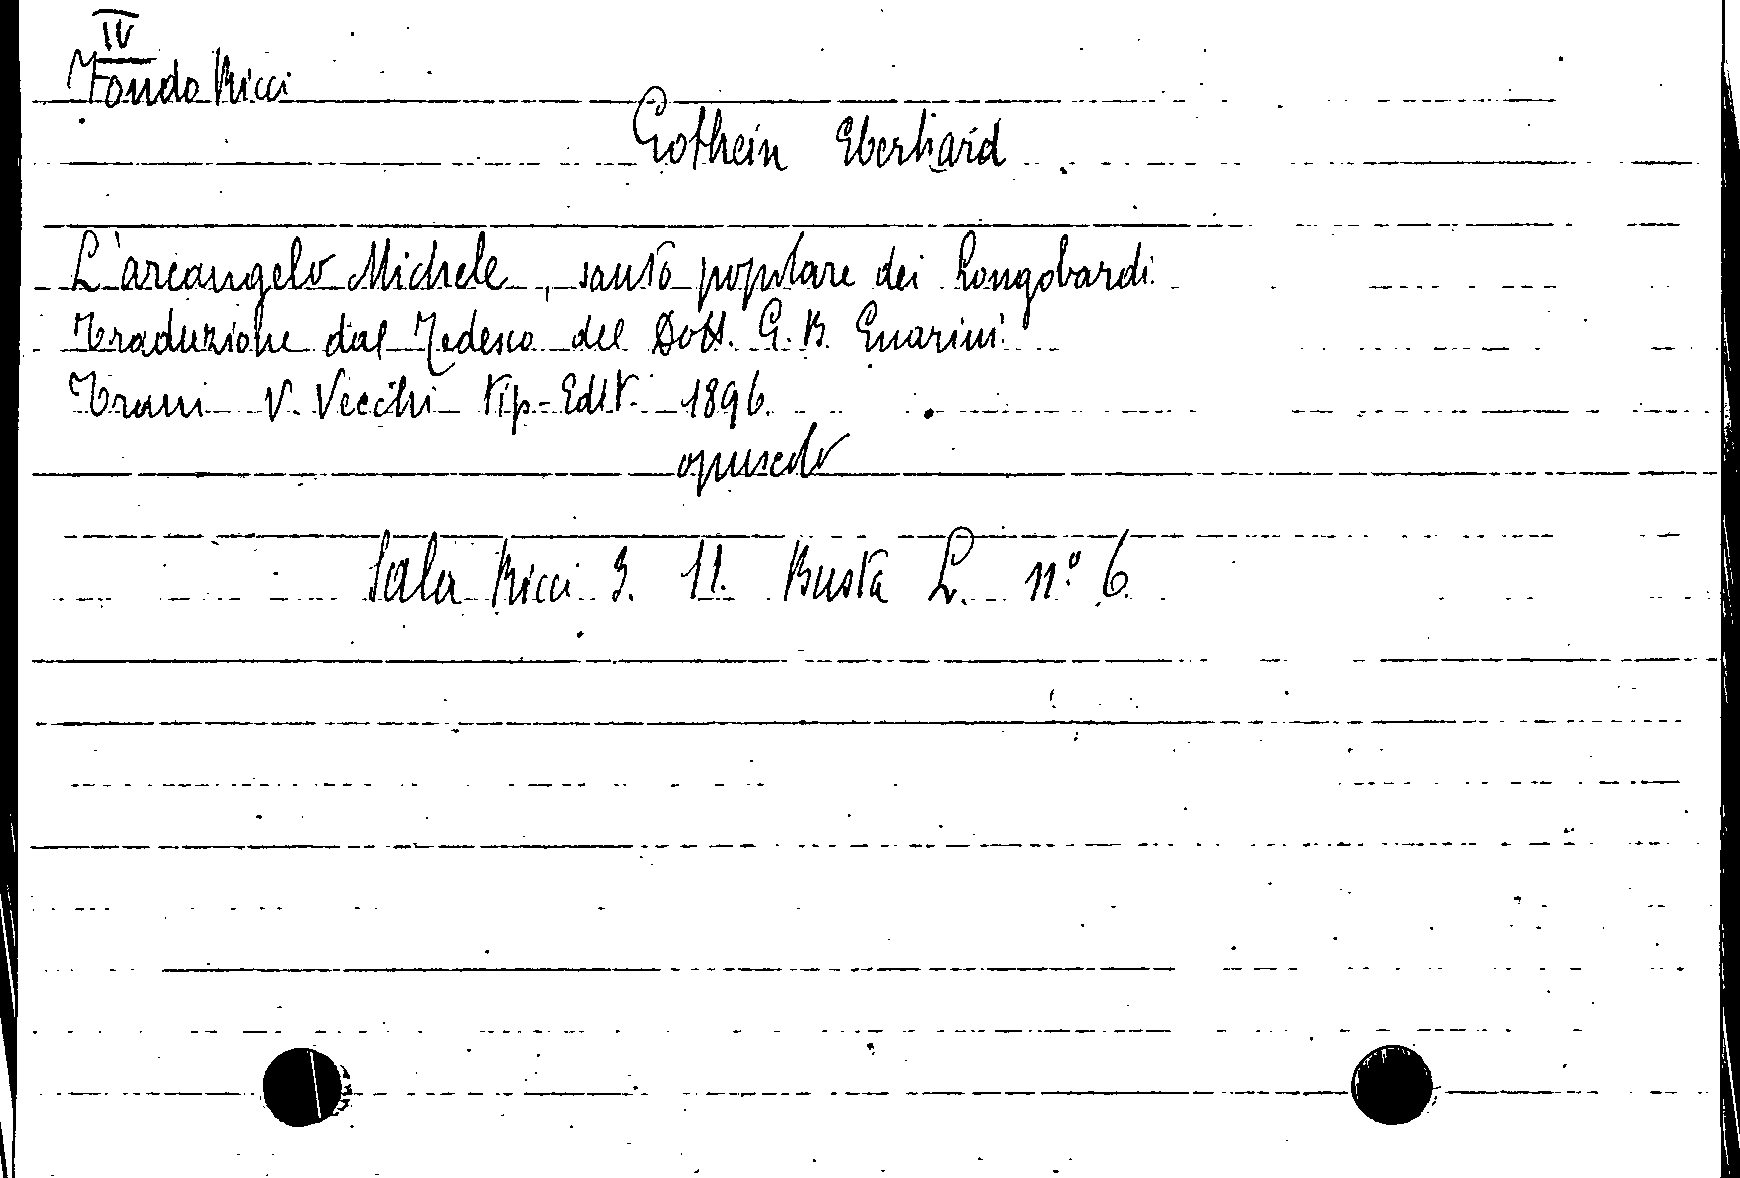 IV
Fondo Ricci
Gothein Eberhard
L'arcangelo Michele, santo popolare dei Longobardi.
Traduzione dal Tedesco del Dott. G. B. Guarini.
Trani V. Vecchi Tip-Edit. 1896.
opuscolo
Sala Ricci 3. 11. Busta L. nº 6